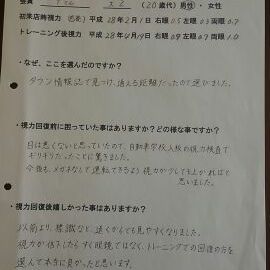 (20歳代) 男性・女性
初来店時視力 平成28年2月1日 右眼0.5 左眼0.3 両眼0.7
トレーニング後視力 平成28年4月19日 右眼0.9 左眼0.7 両眼1.0
・なぜ、ここを選んだのですか？
タウン情報誌で見つけ、通える距離だったので選びました。
・視力回復前に困っていた事はありますか？どの様な事ですか？
目は悪くないと思っていたので、自動車学校入校の視力検査で
ギリギリだったことに驚きました。
今後も、メガネなしで運転できるよう視力がUPしてもらえればと
思いました。
・視力回復後嬉しかった事はありますか？
以前より、標識など、遠くからでも見やすくなりました。
視力が低下したらすぐ眼鏡ではなく、トレーニングでの回復の方を
選んで本当に良かったと思います。